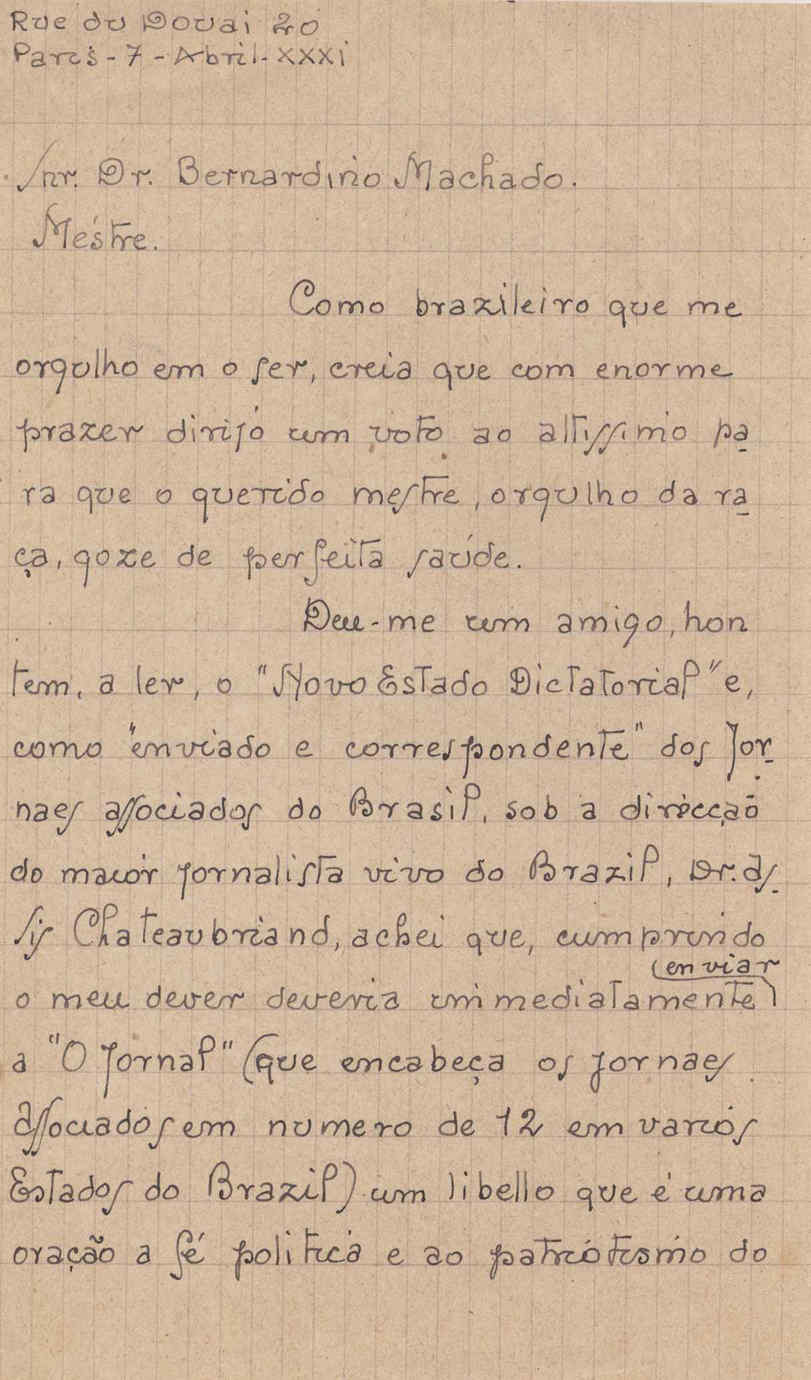 Rue du Douai 20
Paris - 7 - Abril - XXXI
Snr. Dr. Bernardino Machado.
Mestre.
Como brazileiro que me
orgulho em o ser, creia que com enorme
prazer dirijo um voto ao altissimo pa
ra que o querido mestre, orgulho da ra
ça, goze de perfeita saúde.
Deu-me um amigo, hon
tem, a ler, o "Novo Estado Dictatorial" e,
como "enviado e correspondente" dos Jor
naes associados do Brasil, sob a direcção
do maior jornalista vivo do Brazil, Dr. As
sis Chateaubriand, achei que, cumprindo
(enviar
o meu dever deveria immediatamente)
a "O Jornal" (que encabeça os jornaes
Associados em numero de 12 em varios
Estados do Brazil) um libello que é uma
oração a fé politica e ao patriotismo do